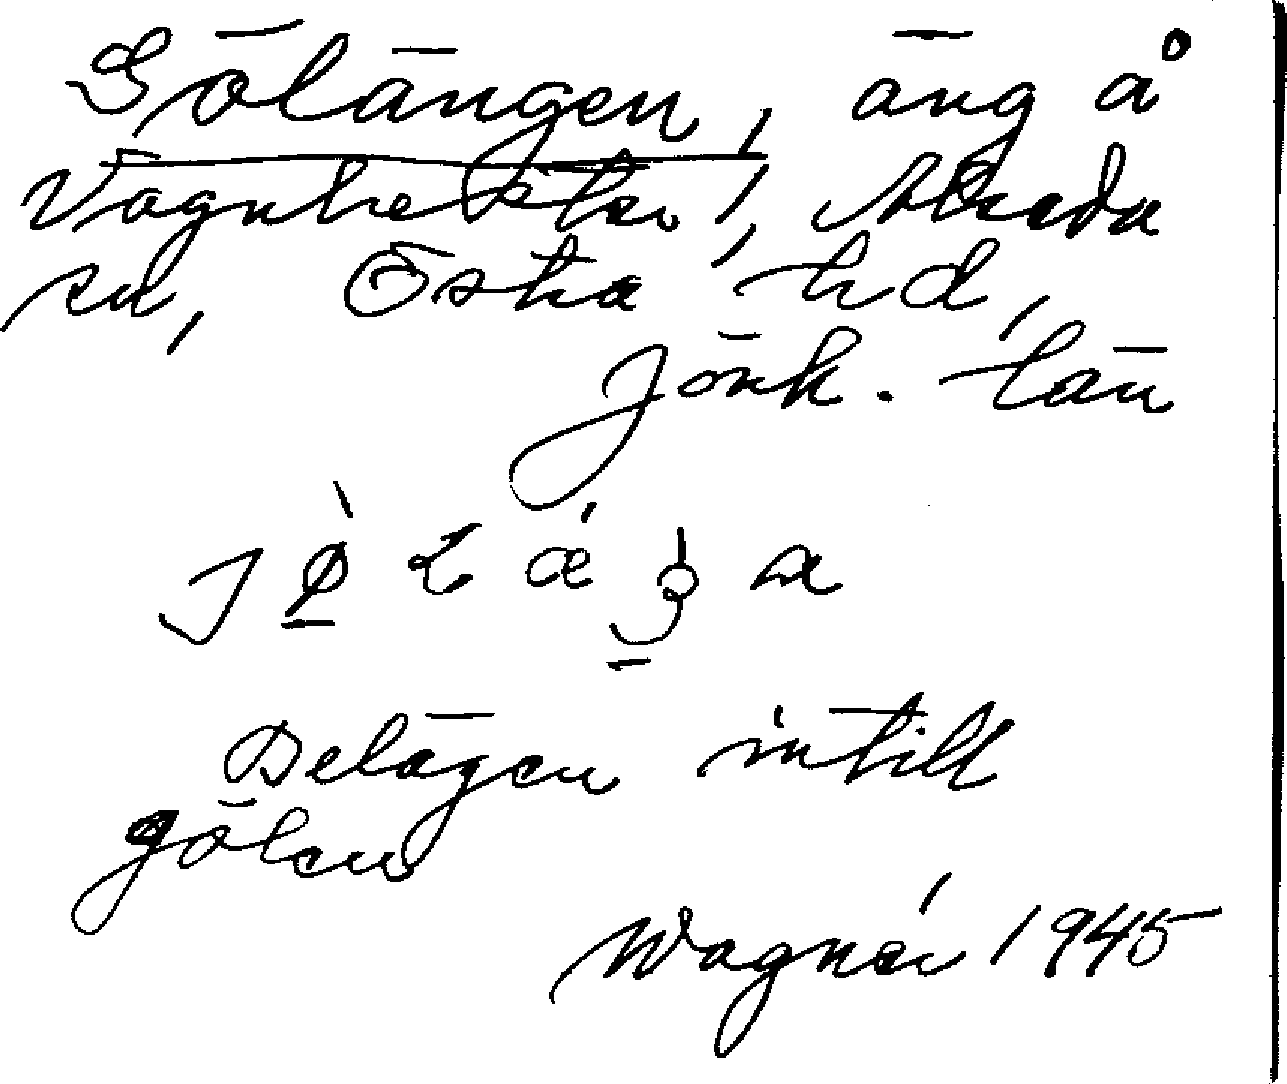 Gölängen, äng å
Vagnhester, Alseda
sn, Östra hd,
Jönk. län
Belägen intill
gölen
Wagnér 1945